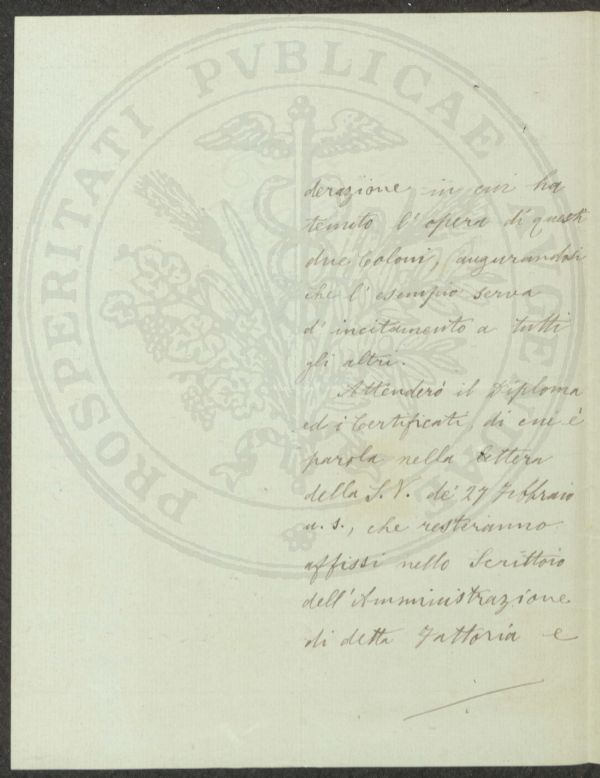 PROSPERITATI PVBLICAE AVGENDAE
derazione in cui ha
tenuto l'opera di questi
due Coloni, augurandosi
che l'esempio serva
d'incitamento a tutti
gli altri.
Attenderò il Diploma
ed i Certificati, di cui è
parola nella lettera
della S. V. de' 27 Febbraio
u. s., che resteranno
affissi nello Scrittoio
dell'Amministrazione
di detta Fattoria e